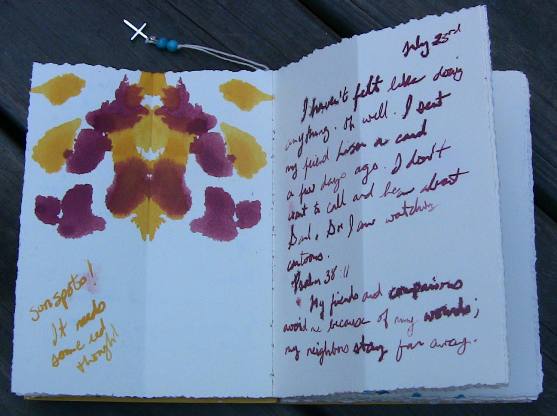 sunspots!
It needs
some red
though!
July 23rd
I haven't felt like doing
anything. Oh well. I sent
my friend a card
a few days ago. I don't
want to call and hear about
So I am watching
cartoons.
Psalm 38:11
My friends and companions
avoid me because of my wounds;
my neighbors stay far away.